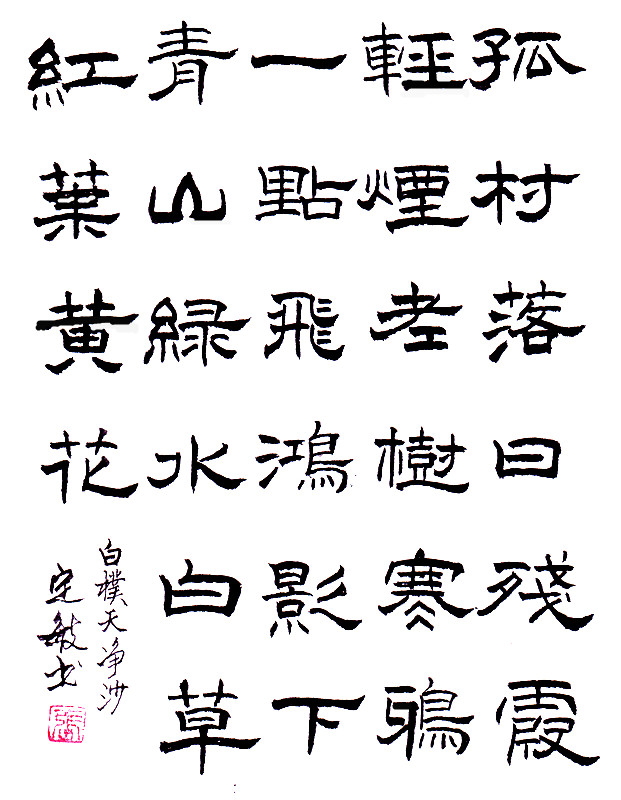 孤村落日殘霞
輕煙老樹寒鴉
一點飛鴻影下
青山綠水白草
紅葉黄花
白樸天净沙
定敏书